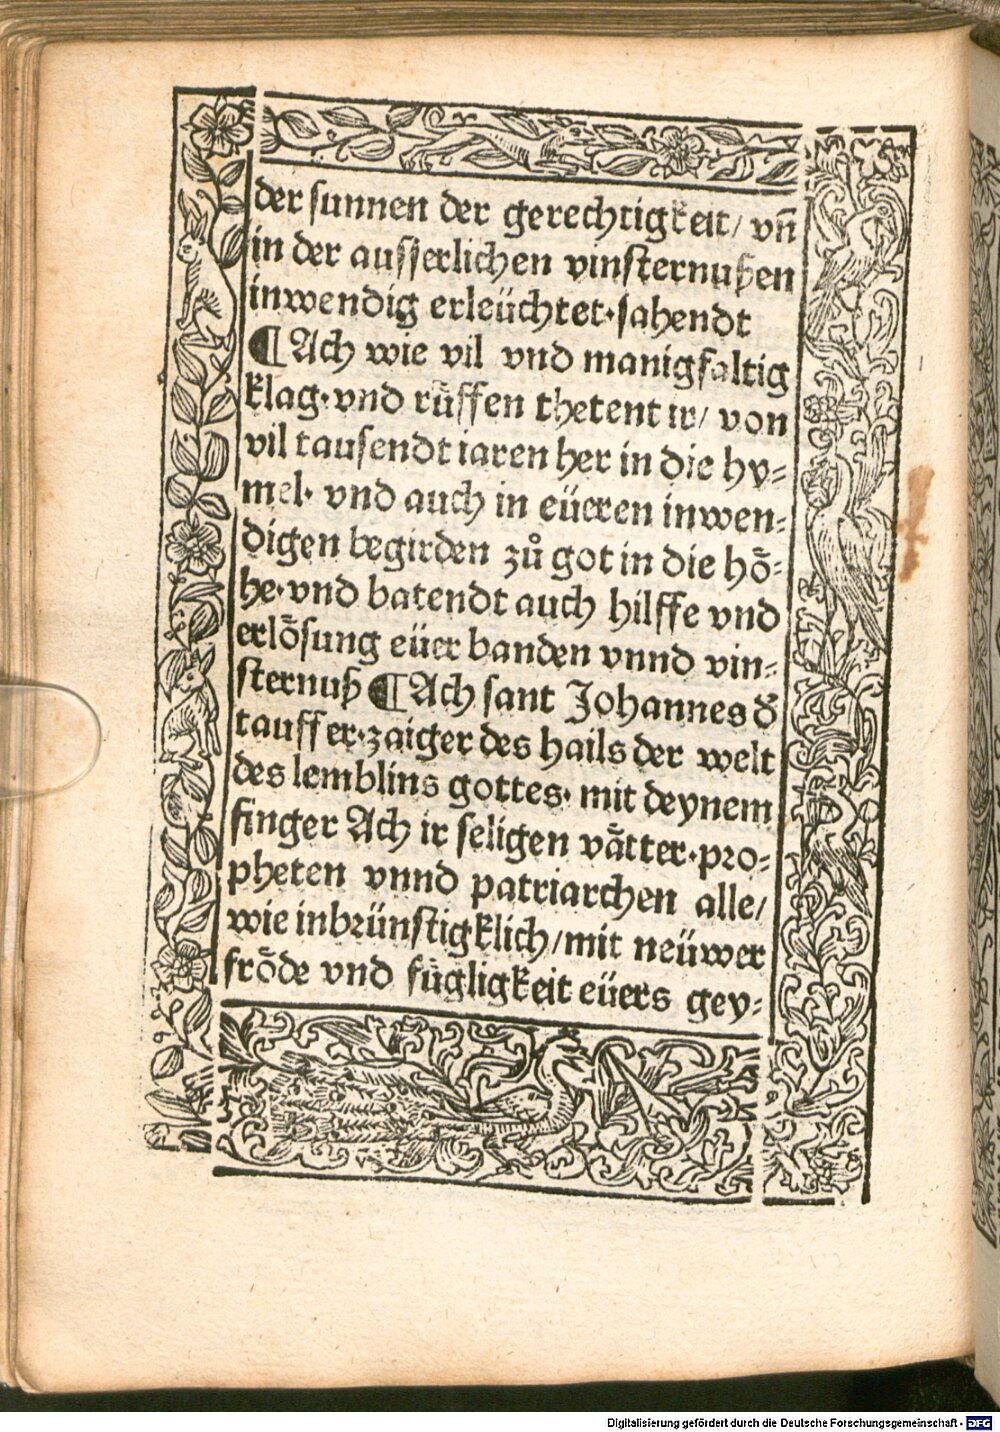 der sunnen der gerechtigkeit/ vñ
in der ausserlichen vinsternußen
inwendig erleüchtet·sahendt
¶Ach wie vil vnd manigfaltig
klag·vnd rüffen thetent ir/ von
vil tausendt iaren her in die hy⸗
mel· vnd auch in eüeren inwen⸗
digen begirden zů got in die hoͤ⸗
he·vnd batendt auch hilffe vnd
erloͤsung eüer banden vnnd vin⸗
sternuß ¶Ach sant Johannes d̓
tauffer·zaiger des hails der welt
des lemblins gottes· mit deynem
finger Ach ir seligen vaͤtter·pro⸗
pheten vnnd patriarchen alle/
wie inbrünstigklich/mit neüwer
froͤde vnd fuͤgligkeit eüers gey⸗
Digitalisierung gefördert durch die Deutsche Forschungsgemeinschaft - DFG